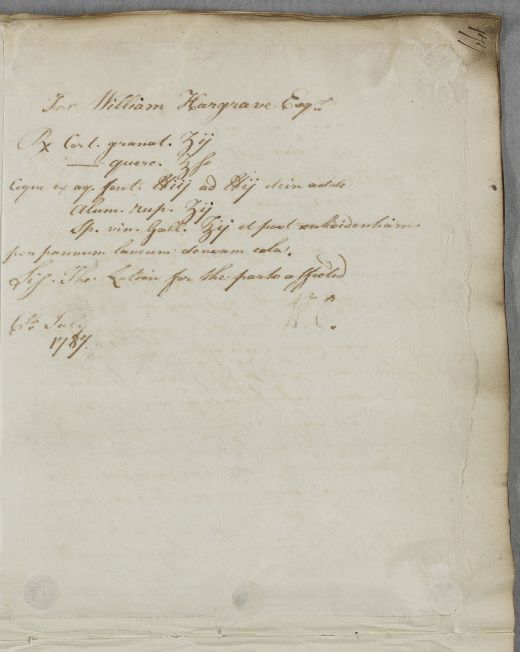 44
For William Hargrave Esqr.
℞ Cort. granat. ℥ij
—— querc. ℥ss
Coque ex aq. font. ℔iij ad ℔ij dein adde
Alum. rup. ℥ij
Sp. vin. Gall. ℥ij et post subsidentiam
per pannum laneum densam cola.
Sig. The Lotion for the parts affected
6th July
1787.